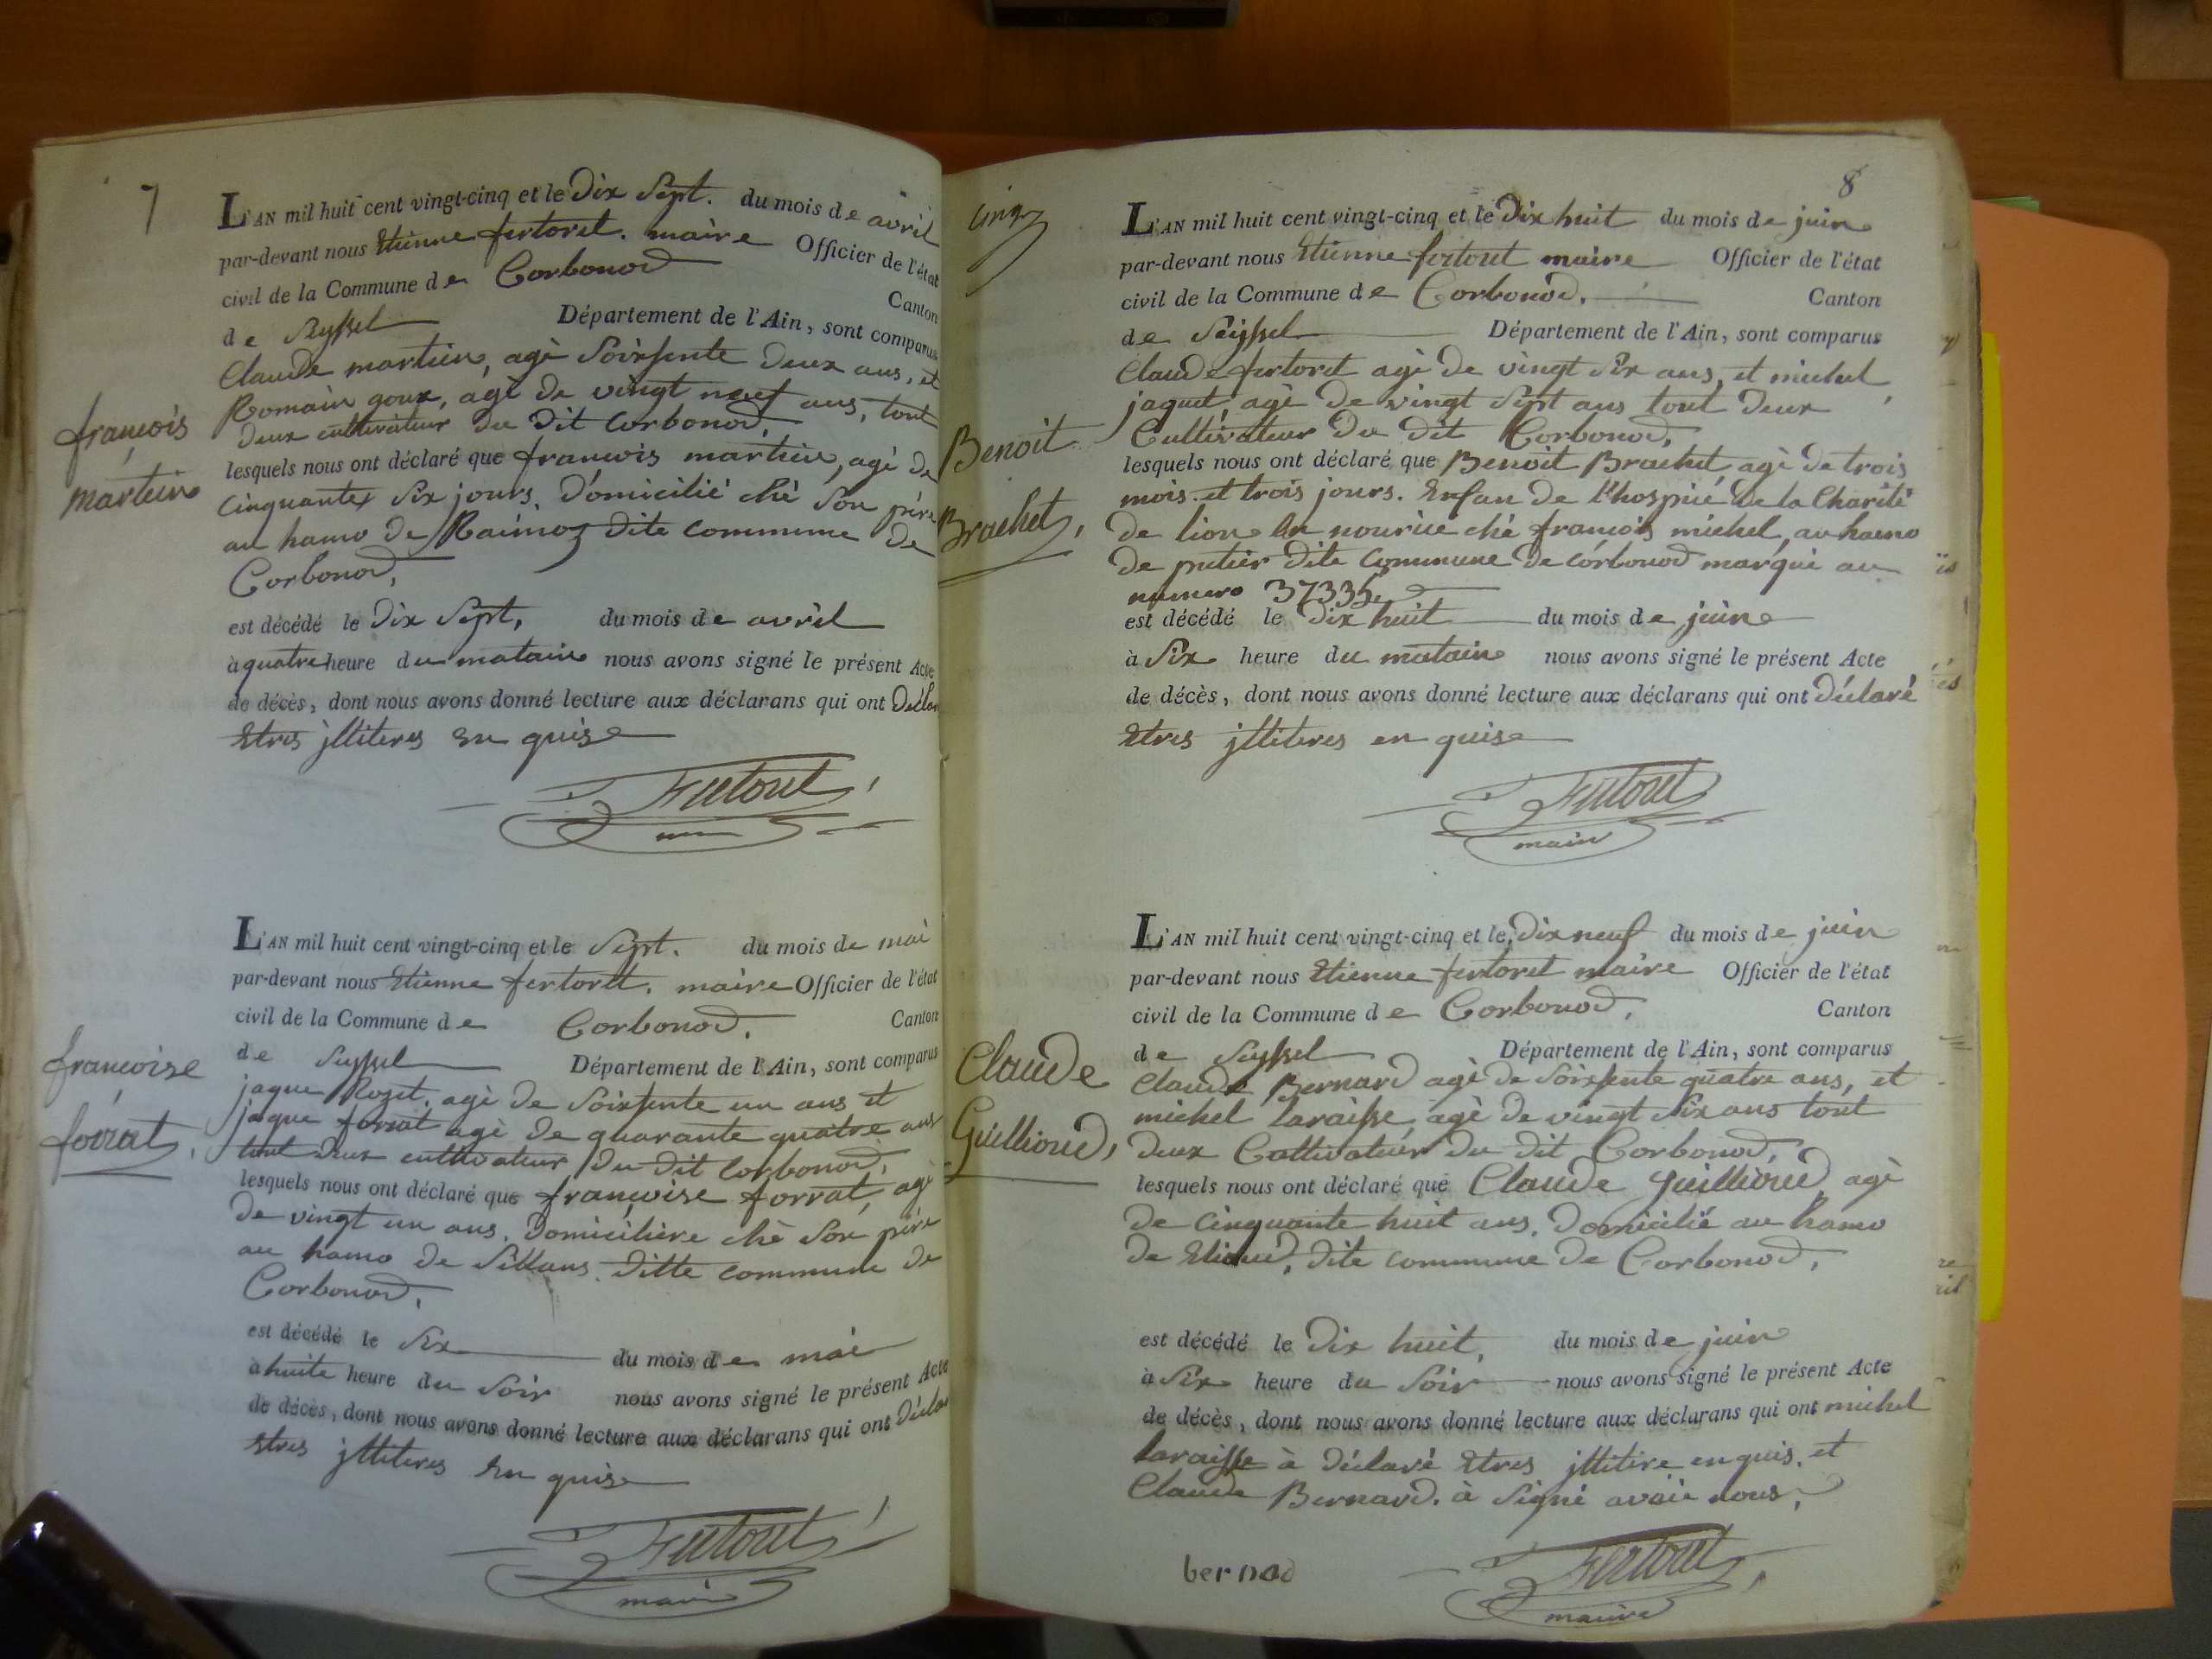 7
L'AN mil huit cent vingt-cinq et le Dix Sept. du mois de avril
par-devant nous Etienne fertoret. maire Officier de l'état
civil de la Commune de Corbonod Canton
de Seyssel Département de l'Ain, sont comparus
Claude martin, agé Soixsente Deux ans, et
Romain goux, agé de vingt neuf ans, tout
Deux cultivateur du Dit Corbonod,
françois
martin
lesquels nous ont déclaré que françois martin, agé de
Cinquantes Six jours, Domicilié ché Son père
au hamo de dite commune de
Corbonod,
est décédé le Dix Sept, du mois de avril
à quatre heure du matain nous avons signé le présent Acte
de décès, dont nous avons donné lecture aux déclarans qui ont Déclar
Etres jlliteres en quise
Fertoret
L'AN mil huit cent vingt-cinq et le Sept. du mois de mai
par-devant nous Etienne fertoret, maire Officier de l'état
civil de la Commune de Corbonod, Canton
de Seyssel Département de l'Ain, sont comparus
françoise
forrat,
jaque Rozet, agé de Soixsente un ans et
jaque forrat agé de quarante quatre ans
tout Deux cultivateur du dit Corbonod,
lesquels nous ont déclaré que françoise forrat, agé
De vingt un ans, Domicilière ché Son père
au hamo de Sillans, ditte commune de
Corbonod,
est décédé le Six du mois de mai
à huite heure du Soir nous avons signé le présent Acte
de décès, dont nous avons donné lecture aux déclarans qui ont Déclar
Etres jlliteres en quise
Fertoret
maire
8
L'AN mil huit cent vingt-cinq et le Dix huit du mois de juin
par-devant nous Etienne fertoret maire Officier de l'état
civil de la Commune de Corbonod, Canton
de Seyssel Département de l'Ain, sont comparus
Claude fertoret agé de vingt Six ans, et michel
jaquet, agé de vingt Sept ans tout Deux
Cultivateur du Dit Corbonod,
Benoit
Brachet,
lesquels nous ont déclaré que Benoit Brachet agé de trois
mois et trois jours. Enfan de l'hospice de la Charité
de lion en nourice ché françois michel, au hamo
de dite Commune de Corbonod marqué au
numero 37335,
est décédé le Dix huit du mois de juin
à Six heure du matain nous avons signé le présent Acte
de décès, dont nous avons donné lecture aux déclarans qui ont Déclaré
Etres jlliteres en quise
Fertoret
maire
L'AN mil huit cent vingt-cinq et le Dix neuf du mois de juin
par-devant nous Etienne fertoret maire Officier de l'état
civil de la Commune de Corbonod, Canton
de Seyssel Département de l'Ain, sont comparus
Claude
Guillioud,
Claude Bernard agé de Soixsente quatre ans, et
michel laraisse, agé de vingt Six ans tout
deux Cultivateur du dit Corbonod,
lesquels nous ont déclaré que Claude guillioud, agé
de Cinquante huit ans, Domicilié au hamo
de dite commune de Corbonod,
est décédé le Dix huit, du mois de juin
à Six heure du Soir nous avons signé le présent Acte
de décès, dont nous avons donné lecture aux déclarans qui ont michel
laraisse à Déclaré Etres jllitire en quis, et
Claude Bernard. à Signé nous,
bernad
Fertoret
maire